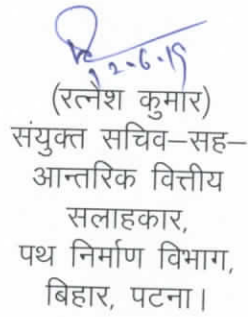 12.6.19
(रत्नेश कुमार)
संयुक्त सचिव–सह–
आन्तरिक वित्तीय
सलाहकार,
पथ निर्माण विभाग,
बिहार, पटना।